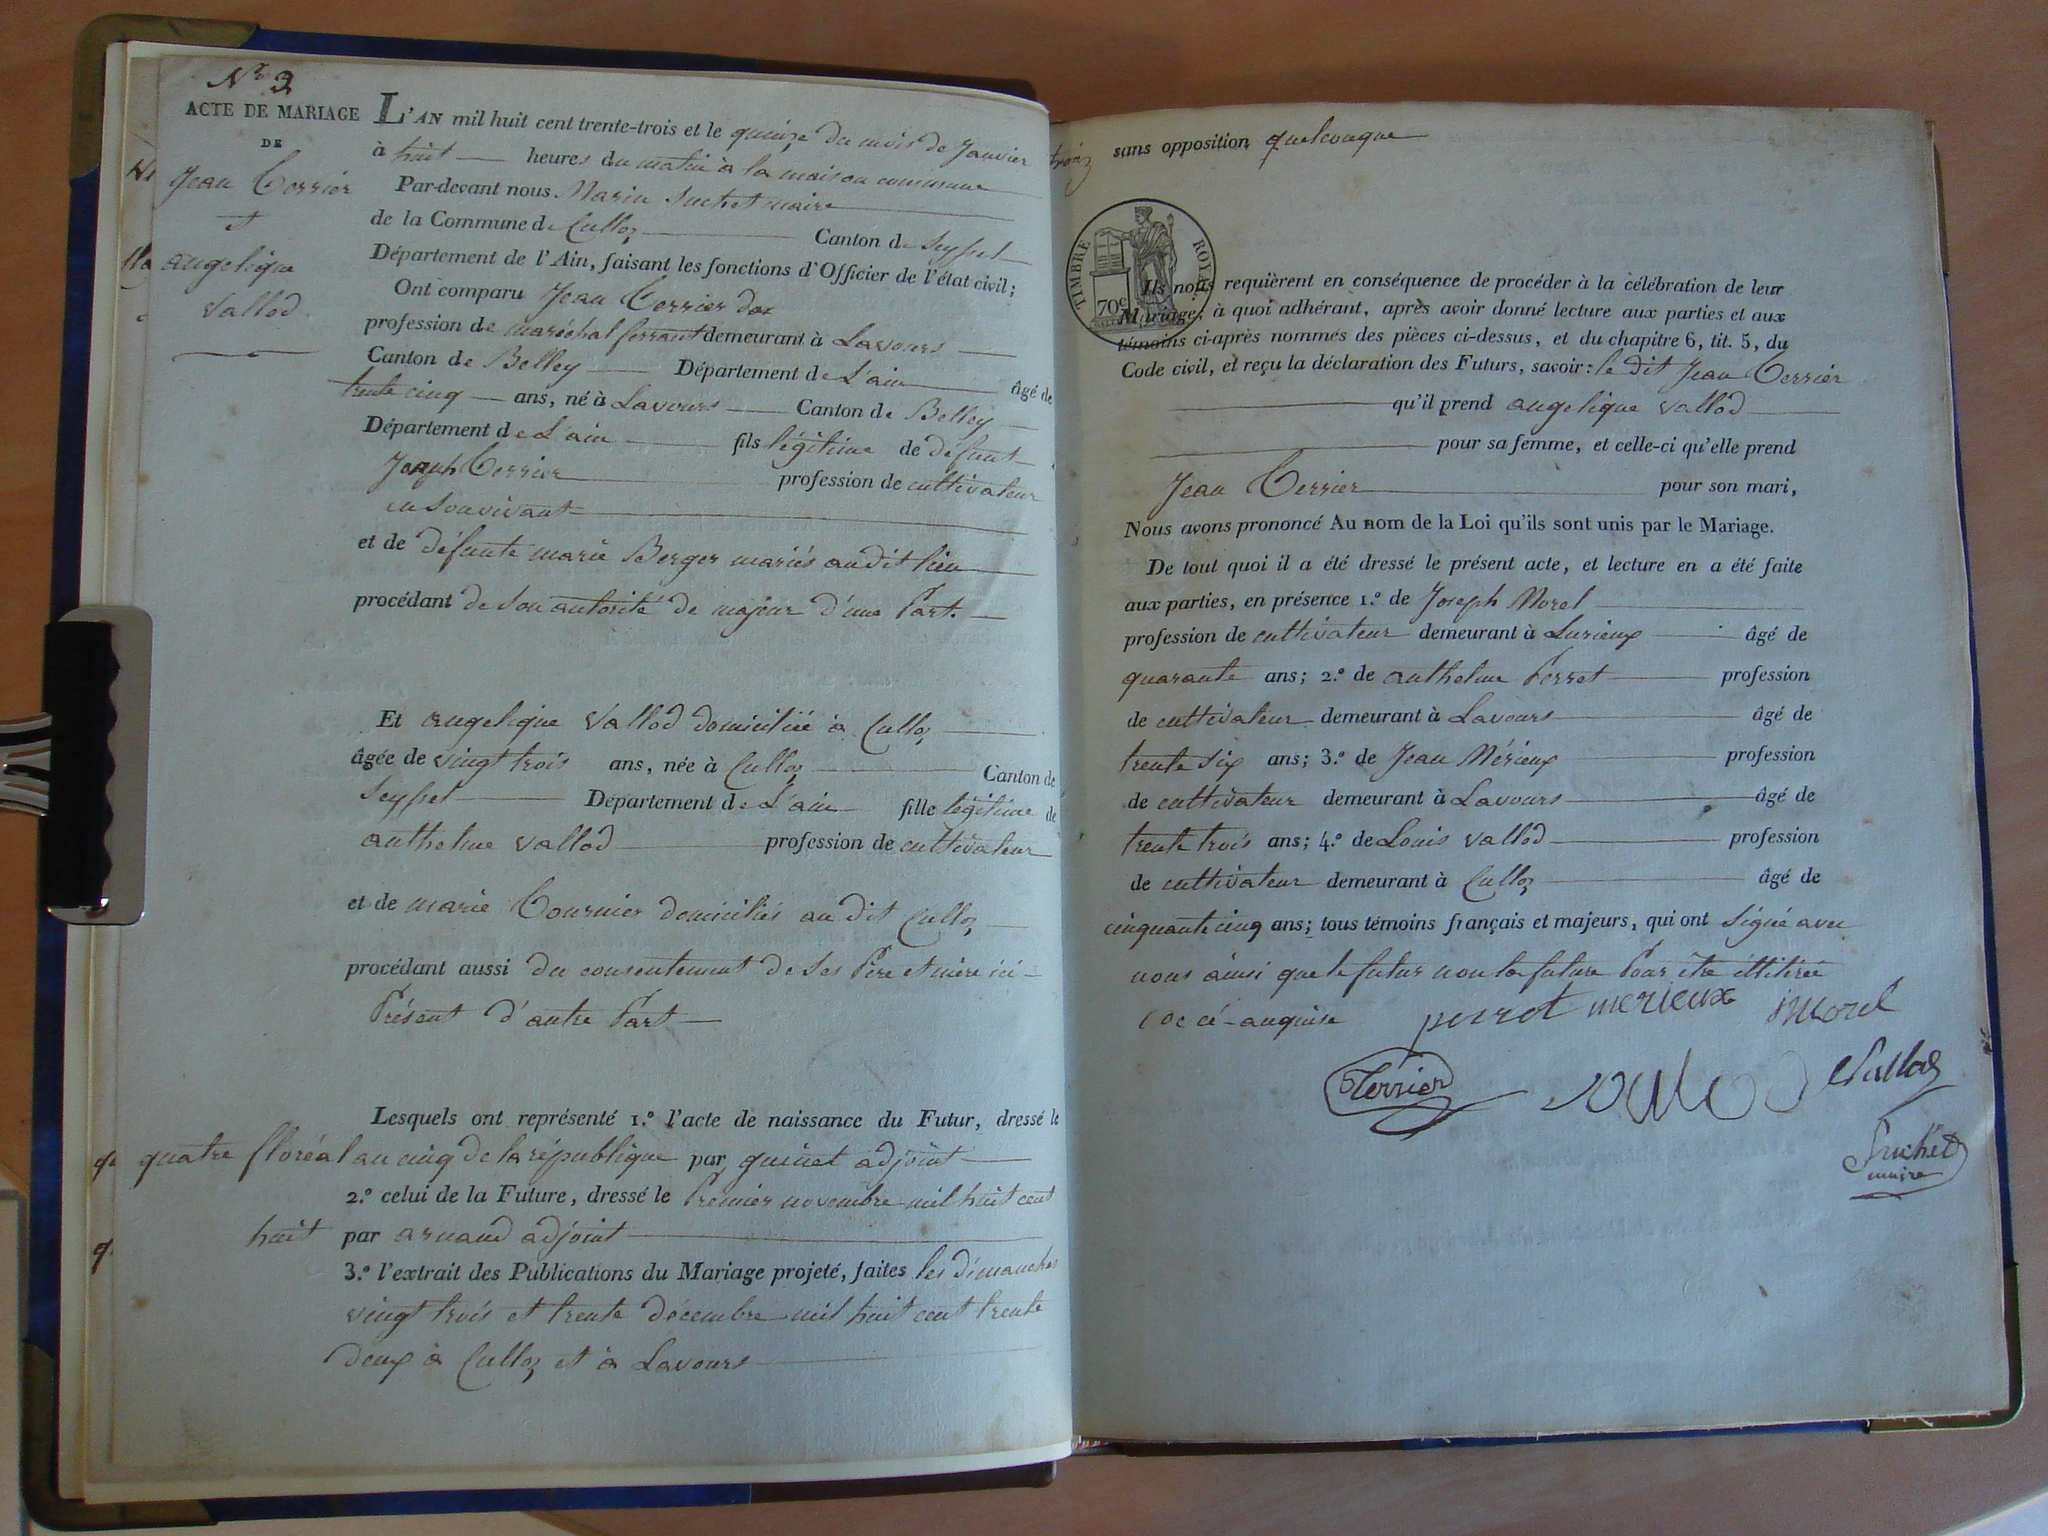 Nr. 3
ACTE DE MARIAGE
DE
Jean Terrier
et
angelique
Vallod
L'AN mil huit cent trente-trois et le quinze du mois de Janvier
à huit heures du matin à la maison commune
Par-devant nous Marin Suchet maire
de la Commune de Culloz Canton de Seyssel
Département de l'Ain, faisant les fonctions d'Officier de l'état civil;
Ont comparu Jean Terrier
profession de maréchal ferrant demeurant à Lavours
Canton de Belley Département de L'ain âgé de
trente cinq ans, né à Lavours Canton de Belley
Département de L'ain fils légitime de defunt
Joseph Terrier profession de cultivateur
en son vivant
et de défunte marie Berger mariés au dit lieu
procédant de son autorité de majeur d'une Part.
Et angelique Vallod domiciliée à Culloz
âgée de vingt trois ans, née à Culloz Canton de
Seyssel Département de L'ain fille légitime de
anthelme Vallod profession de cultivateur
et de marie Tournier domiciliés au dit Culloz
procédant aussi du consentement de ses Père et mère ici
Présent d'autre Part
Lesquels ont représenté 1.° l'acte de naissance du Futur, dressé le
quatre floréal an cinq de la république par guinet adjoint
2.° celui de la Future, dressé le Premier novembre mil huit cent
huit par arnaud adjoint
3.° l'extrait des Publications du Mariage projeté, faites les dimanches
vingt trois et trente décembre mil huit cent trente
deux à Culloz et à Lavours
sans opposition quelconque
TIMBRE ROYAL
70c
Ils nous requièrent en conséquence de procéder à la célébration de leur
Mariage; à quoi adhérant, après avoir donné lecture aux parties et aux
témoins ci-après nommés des pièces ci-dessus, et du chapitre 6, tit. 5, du
Code civil, et reçu la déclaration des Futurs, savoir: le dit Jean Terrier
qu'il prend angelique Vallod
pour sa femme, et celle-ci qu'elle prend
Jean Terrier pour son mari,
Nous avons prononcé Au nom de la Loi qu'ils sont unis par le Mariage.
De tout quoi il a été dressé le présent acte, et lecture en a été faite
aux parties, en présence 1.° de Joseph Morel
profession de cultivateur demeurant à Lurieux âgé de
quarante ans; 2.° de anthelme Perret profession
de cultivateur demeurant à Lavours âgé de
trente six ans; 3.° de Jean Mérieux profession
de cultivateur demeurant à Lavours âgé de
trente trois ans; 4.° de Louis Vallod profession
de cultivateur demeurant à Culloz âgé de
cinquante cinq ans; tous témoins français et majeurs, qui ont signé avec
nous ainsi que le futur non la future Pour être illitirée
de ce enquise perrot merieux J Morel
Terrier valod Vallod
Suchet
maire